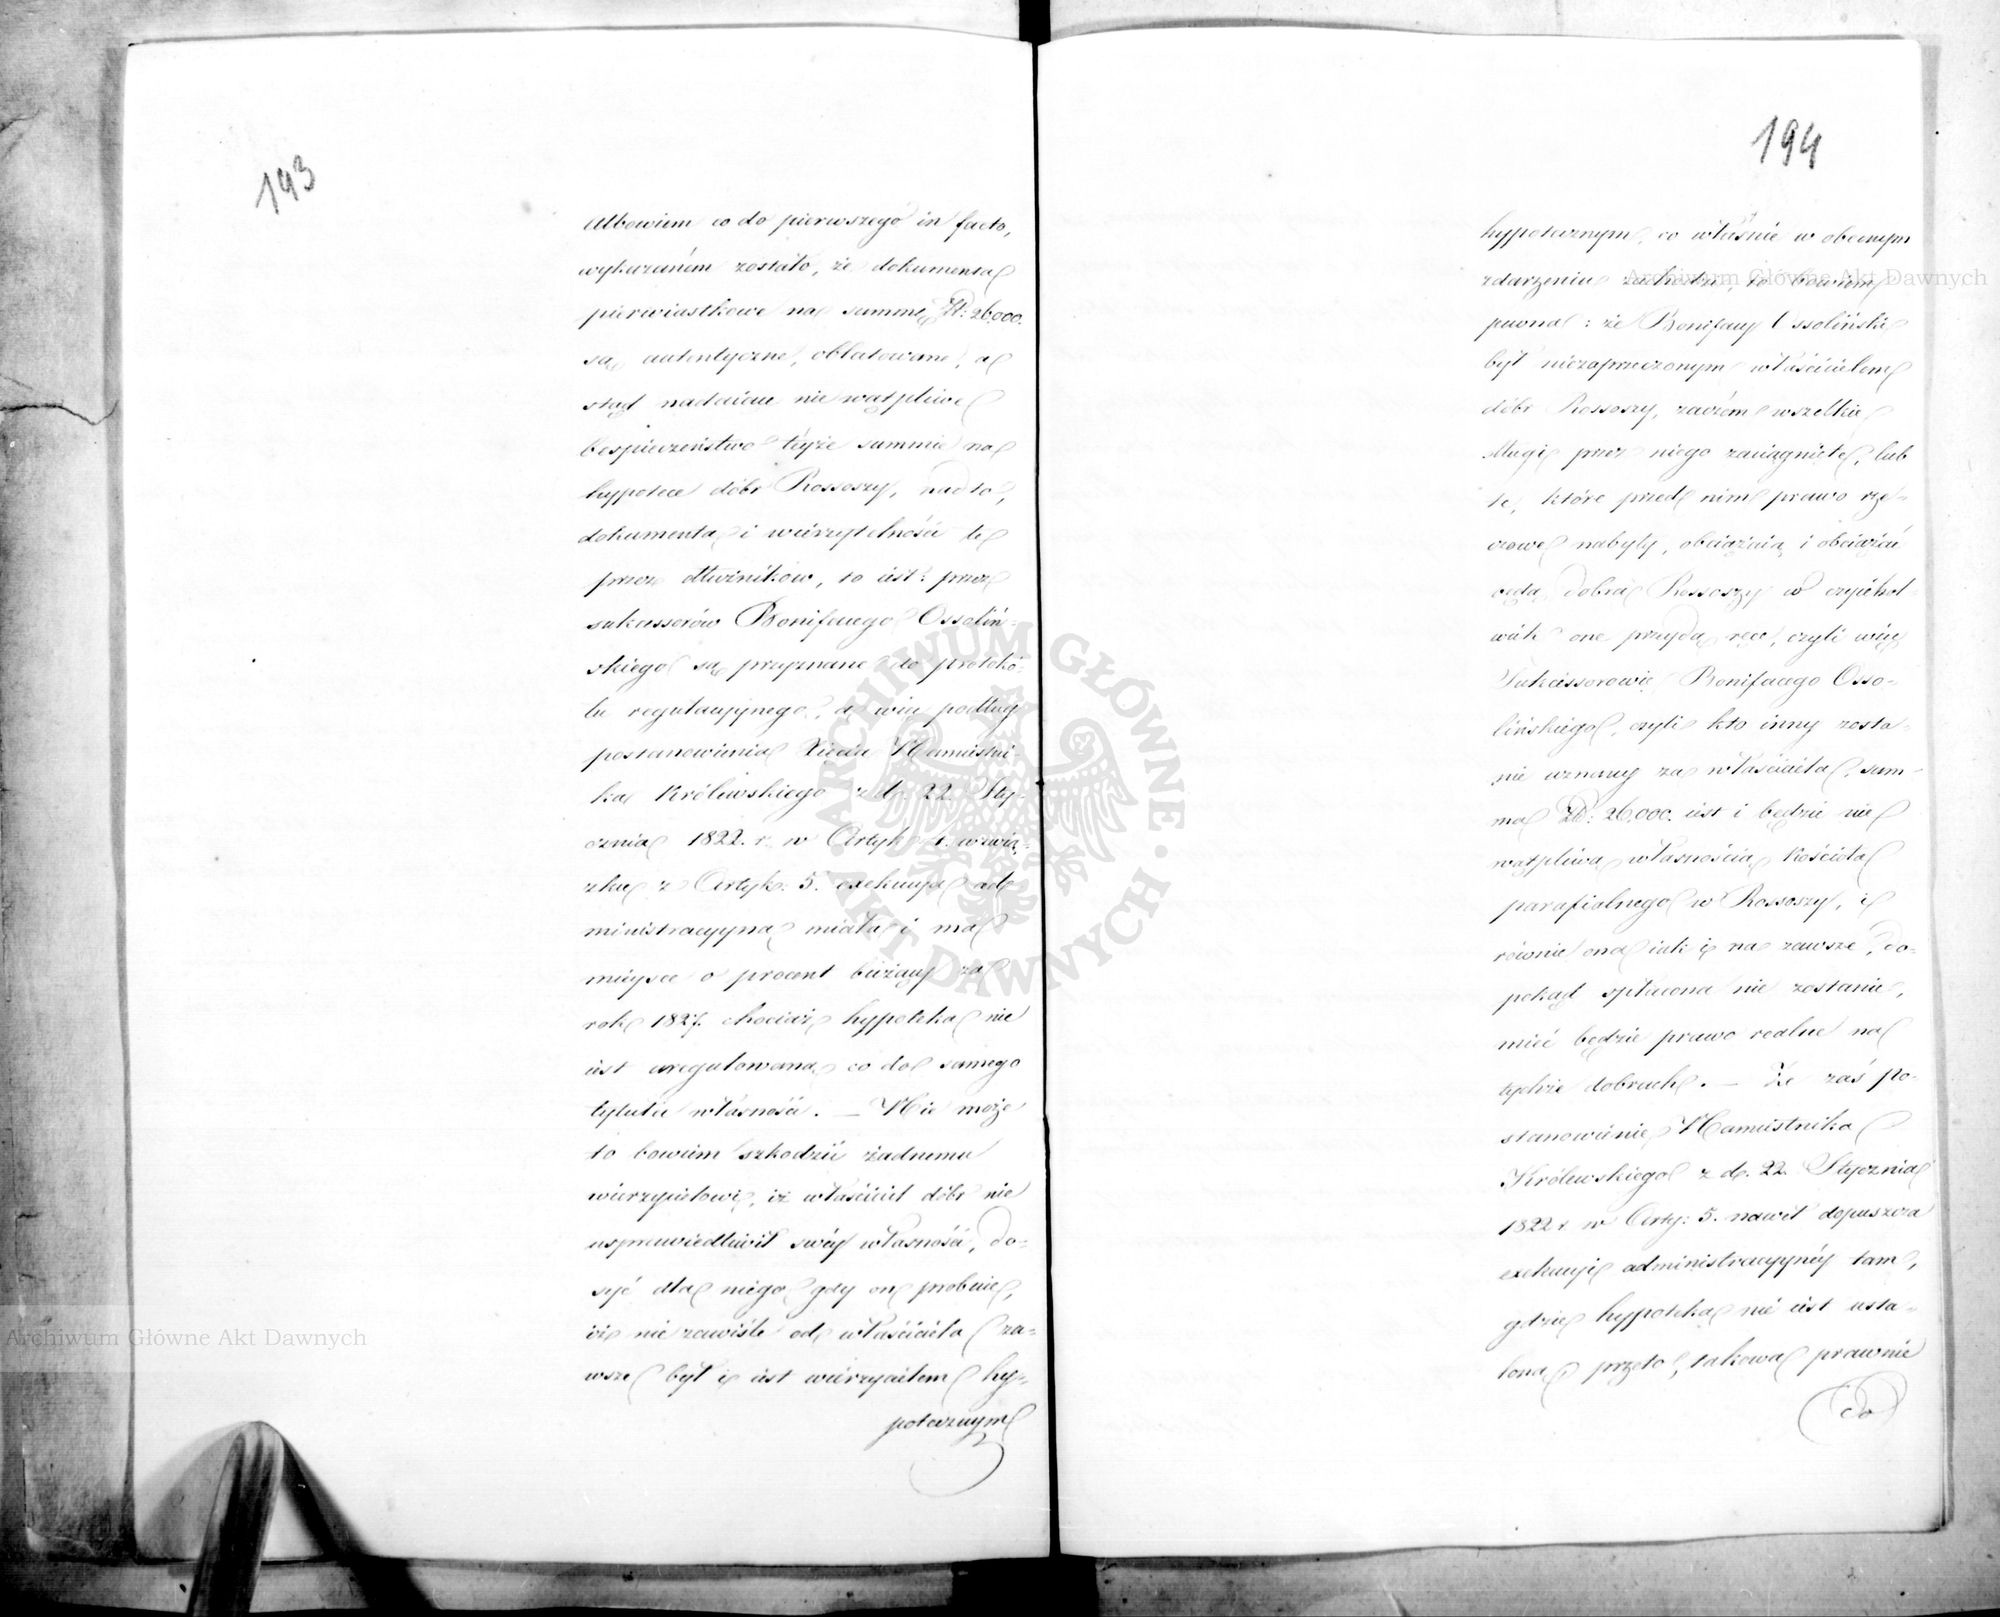 193
Albowiem co do pierwszego in facto,
wykazaném zostało, że dokumenta
pierwiastkowe na summę Zł: 26,000.
są autentyczne, oblatowane, a
stąd naddaiące nie wątpliwe
bespieczeństwo téyże summie na
hypotece dóbr Rossoszy, nadto,
dokumenta i wierzytelności te
przez dłużników, to iest: przez
sukcessorów Bonifacego Ossoliń-
skiego są przyznane do protokó-
łu regulacyjnego, a więc podług
postanowienia Xięcia Namiestni-
ka Królewskiego z d. 22. Sty-
cznia 1822. r. w Artyk: 1. w zwią-
zku z Artyk: 5. exekucya ad-
ministracyyna miała i ma
mieysce o procent bieżący za
rok 1827. chociaż hypoteka nie
iest uregulowana co do samego
tytułu własności. — Nie może
to bowiem szkodzić żadnemu
wierzycielowi, iż właściciel dóbr nie
usprawiedliwił swéy własności, do-
syć dla niego gdy on probuie,
iż nie zawiśle od właściciela za-
wsze był i iest wierzycielem hy-
potecznym
194
hypotecznym, co właśnie w obecnym
zdarzeniu zachodzi, to bowiem
pewna: że Bonifacy Ossoliński
był niezaprzeczonym właścicielem
dóbr Rossoszy, zaczém wszelkie
długi przez niego zaciągnięte, lub
te, które przed nim prawo rze-
czowe nabyły, obciążaią i obciążać
będą dobra Rossoszy w czyichkol-
wiek one przyda ręce, czyli więc
Sukcessorowie Bonifacego Osso-
lińskiego, czyli kto inny zosta-
nie uznany za właściciela, sum-
ma Zł: 26,000. iest i będzie nie
wątpliwą własnością Kościoła
parafialnego w Rossoszy, i
równie ona iak i na zawsze, do-
pokąd spłacona nie zostanie,
mieć będzie prawo realne na
tychże dobrach. — Że zaś po-
stanowienie Namiestnika
Królewskiego z d. 22. Stycznia
1822 r. w Arty: 5. nawet dopuszcza
exekucyi administracyynéy tam,
gdzie hypoteka nie iest usta-
lona, przeto, takowa prawnie
co
Archiwum Główne Akt Dawnych
Archiwum Główne Akt Dawnych
ARCHIWUM GŁÓWNE · AKT DAWNYCH ·